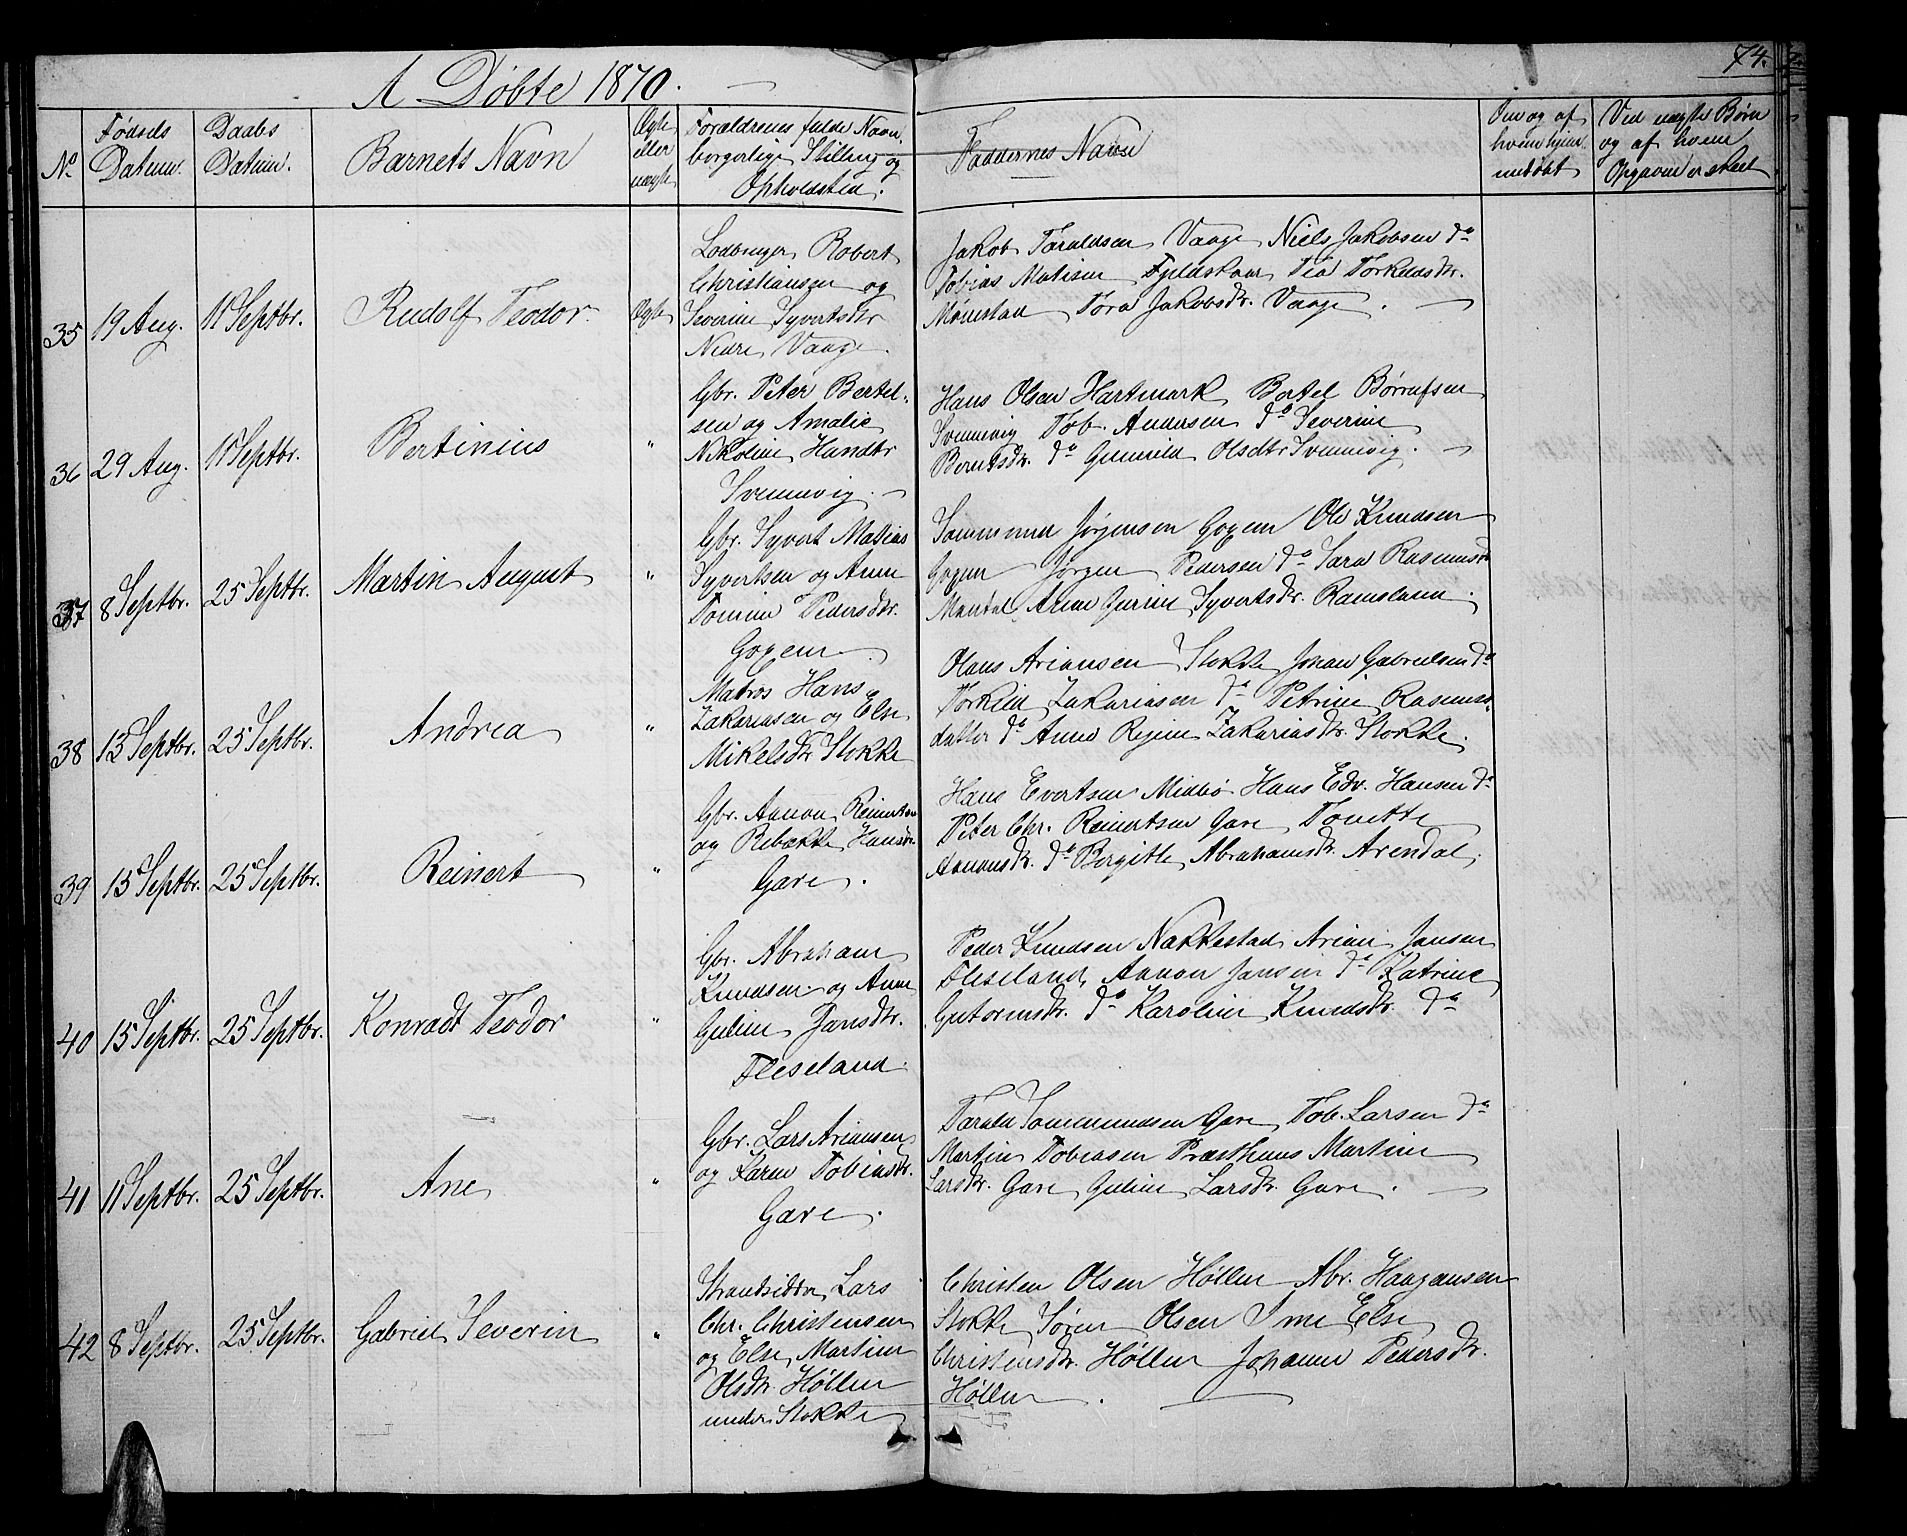 A Döbte 1870.
74.
No
Födsels Datum.
Daabs Datum.
Barnets Navn
Ægte eller uægte
Forældrenes fulde Navn, borgerlige Stilling og Opholdsted.
Faddernes Navn
Om og af hvem hjemmedöbt
Ved uægte Börn og af hvem Opgaven er skeet
35 19 Aug. 11 Septbr. Rudolf Teodor Ægte
Lodbruger Robert
Christiansen og
Severine Syvertsdtr
Nedre Vaage.
Jakob Taraldsen Vaage Niels Jakobsen do
Tobias Matisen Fjeldskaar Tea Torkildsdtr.
Mönestad Tora Jakobsdtr. Vaage.
36 29 Aug. 11 Septbr. Bertinius "
Gbr. Peter Bertel-
sen og Amalie
Nikoline Hansdtr
Svennevig.
Hans Olsen Hartmark Bertel Börrufsen
Svennevig Tob. Andersen do Severine
Berntsdr. do Gunnild Olsdtr Svennevig.
37 8 Septbr. 25 Septbr. Martin August "
Gbr. Syvert Matias
Syvertsen og Anne
Tomine Pedersdtr.
Gogem
Tommine Jörgensen Gogem Ole Knudsen
Gogem Jörgen Pedersen do Sara Rasmusdr
Mandal, Anne Jurine Syvertsdr. Ramsland.
38 13 Septbr. 25 Septbr. Andrea "
Matros Hans
Zakariasen og Else
Mikelsdtr Stokke
Hans Ariansen Stokke Johan Gabrielsen do
Torkild Zakariasen do Petrine Rasmus-
datter do Anne Regine Zakariasdtr. Stokke.
39 15 Septbr. 25 Septbr. Reinert "
Gbr. Aanon Reinertsen
og Rebekke Hansdr.
Gare.
Hans Evertsen Midbö Hans Edv. Hansen do
Peter Chr. Reinertsen Gare Tonette
Aanonsdtr. do Bergitte Abrahamsdtr. Arendal.
40 15 Septbr. 25 Septbr. Konradt Teodor "
Gbr. Abraham
Knudsen og Anne
Guline Jansdtr.
Fleseland.
Peder Knudsen Nakkestad Ariem Jansen
Fleseland, Aanon Jansen do Katrine
Gutormsdtr. do Karoline Knudsdtr. do
41 11 Septbr. 25 Septbr. Ane "
Gbr. Lars Ariansen
og Karen Tobiasdtr.
Gare.
Tarald Tommundsen Gare Tob. Larsen do
Martin Tobiasen Præsthuus Martine
Larsdtr. Gare Guline Larsdtr. Gare.
42 8 Septbr. 25 Septbr. Gabriel Severin "
Strandsidder Lars
Chr. Christensen
og Else Martine
Olsdtr. Höllen
under Stokke
Christen Olsen Höllen Abr. Haagensen
Stokke Sören Olsen Ime Else
Christensdtr. Höllen Johanne Pedersdtr.
Höllen.